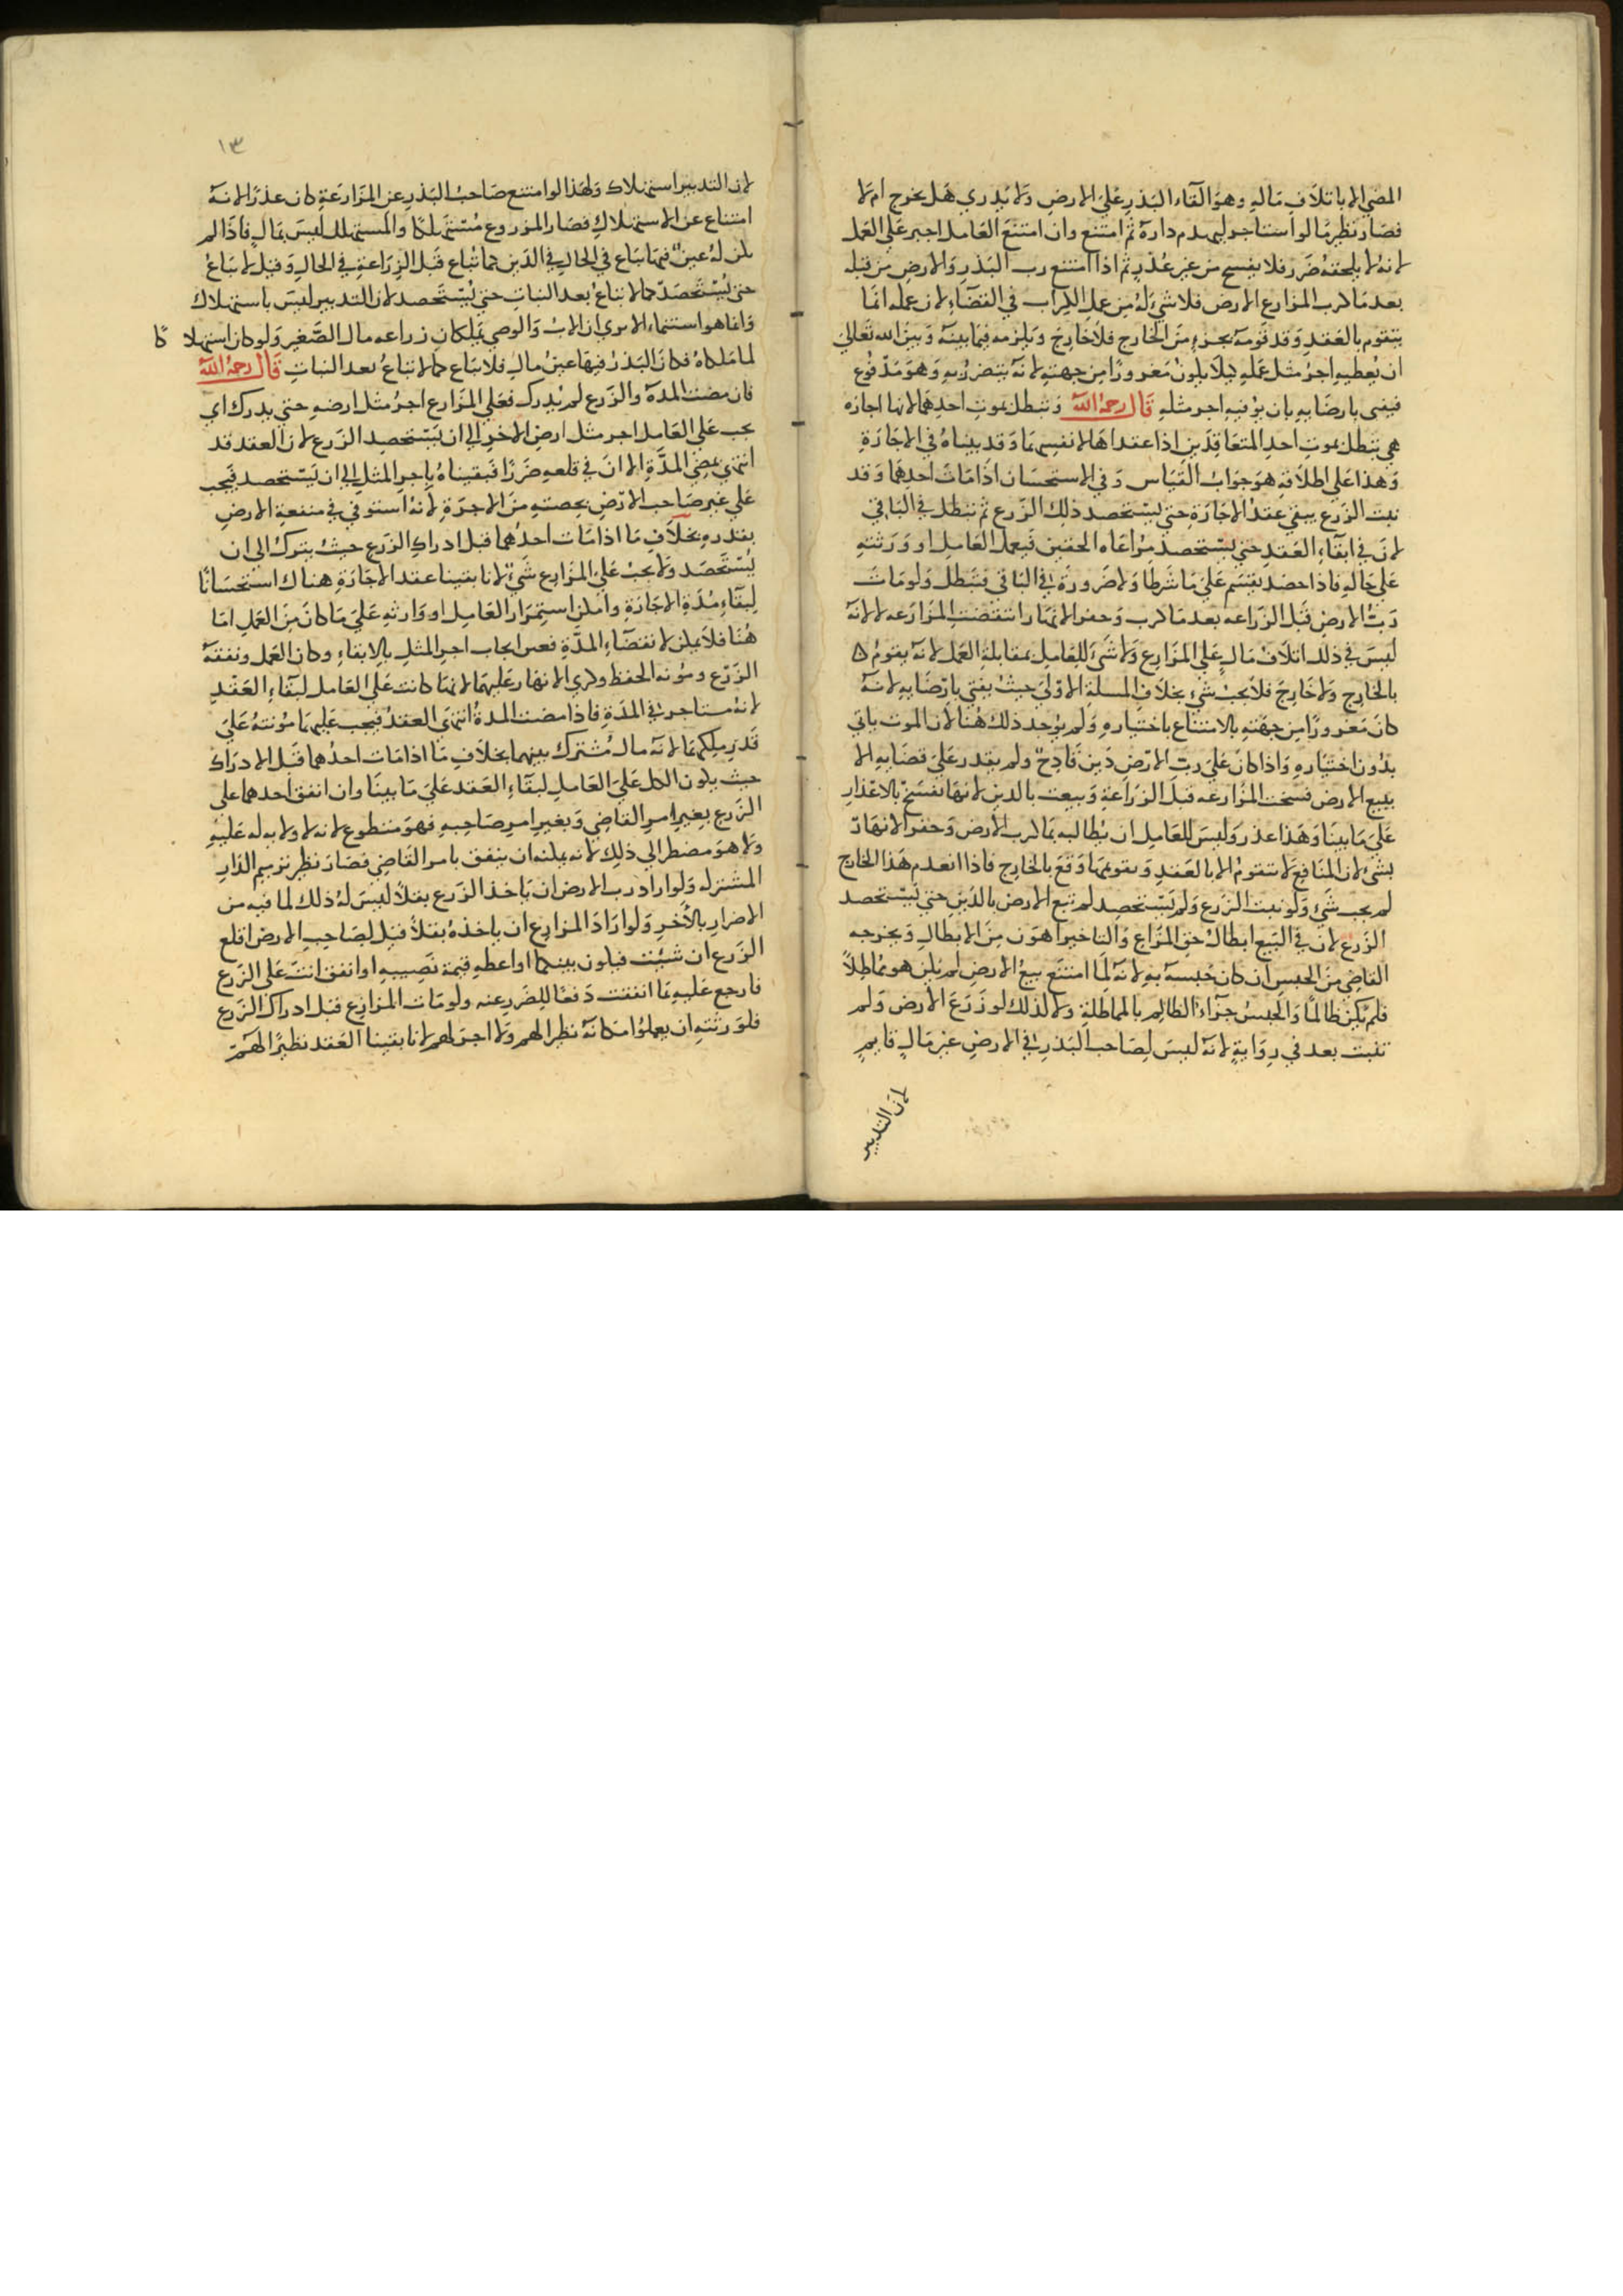 المضي الا باتلاف ماله وهو القاء البذر على الارض ولا يدري هل يخرج ام لا
فصار نظير ما لو استاجر ليهدم داره ثم امتنع وان امتنع العامل اجبر على العمل
لانه لا يلحقه ضرر فلا يفسخ من غير عذر ثم اذا امتنع رب البذر والارض من قبله
بعد ما كرب المزارع الارض فلا شيء له من عمل الكراب في القضاء لان عمله انما
يتقوم بالعقد وقد قومه بجزء من الخارج فلا خارج ويلزمه فيما بينه وبين الله تعالى
ان يعطيه اجر مثل عمله كيلا يكون مغرورا من جهته لانه يتضرر به وهو مدفوع
فيفتى بارضائه بان يوفيه اجر مثله قال رحمه الله وتبطل بموت احدهما لانها اجارة
هي تبطل بموت احد المتعاقدين اذا عقداها لانفسهما وقد بيناه في الاجارة
وهذا على اطلاقه هو جواب القياس وفي الاستحسان اذا مات احدهما وقد
نبت الزرع يبقى عقد الاجارة حتى يستحصد ذلك الزرع ثم تبطل في الباقي
لان في ابقاء العقد حتى يستحصد مراعاه الحقين فيعمل العامل او ورثته
على حاله فاذا حصد يقسم على ما شرطا ولا ضرورة في الباقي فتبطل ولو مات
رب الارض قبل الزراعه بعد ما كرب وحفر الانهار انتقضت المزارعه لانه
ليس في ذلك اتلاف مال على المزارع ولا شيء للعامل بمقابلة العمل لانه يقوم
بالخارج ولا خارج فلا يجب شيء بخلاف المسلة الاولى حيث يفتى بارضائه لانه
كان مغرورا من جهته بالامتناع باختياره ولم يوجد ذلك هنا لان الموت ياتي
بدون اختياره واذا كان على رب الارض دين فادح ولم يقدر على قضائه الا
ببيع الارض فسخت المزارعه قبل الزراعة وبيعت بالدين لانها تفسخ بالاعذار
على ما بينا وهذا عذر وليس للعامل ان يطالبه بما كرب الارض وحفر الانهار
بشئ لان المنافع لا تتقوم الا بالعقد وتقويمها وقع بالخارج فاذا انعدم هذا الخارج
لم يجب شيء ولو نبت الزرع ولم يستحصد لم تبع الارض بالدين حتى يستحصد
الزرع لان في البيع ابطال حق المزارع والتاخير اهون من الابطال ويخرجه
القاضي من الحبس ان كان حبسه به لانه لما امتنع بيع الارض لم يكن هو مماطلا
فلم يكن ظالما والحبس جزاء الظالم بالمماطلة ولا لذلك لو زرع الارض ولم
تنبت بعد في رواية لانه ليس لصاحب البذر في الارض غير مال قايم
لان التدبير
١٣
لان التدبير استهلاك ولهذا لو امتنع صاحب البذر عن المزارعة كان عذرا لانه
امتناع عن الاستهلاك فصار المزروع مستهلكا والمستهلك ليس بمال فاذا لم
يكن له عين فيها يباع في الحال في الدين كما تباع قبل الزراعة في الحال وقيل لا تباع
حتى يستحصد كما لا تباع بعد النبات حتى يستحصد لان التدبير ليس باستهلاك
وانما هو استنماء الا يرى ان الاب والوصي يملكان زراعه مال الصغير ولو كان استهلاكا
لما ملكاه فكان البذر فيها عين مال فلا تباع كما لا تباع بعد النبات قال رحمه الله
فان مضت المدة والزرع لم يدرك فعلى المزارع اجر مثل ارضه حتى يدرك اي
يجب على العامل اجر مثل ارض الاخر الى ان يستحصد الزرع لان العقد قد
انتهى بمضي المدة الا ان في قلعه ضررا فبقيناه باجر المثل الى ان يستحصد فيجب
على غير صاحب الارض بحصته من الاجرة لانه استوفى في منفعة الارض
بقدره بخلاف ما اذا مات احدهما قبل ادراك الزرع حيث يترك الى ان
يستحصد ولا يجب على المزارع شيء لانا بقينا عقد الاجارة هناك استحسانا
لبقاء مدة الاجارة وامكن استمرار العامل او وارثه على ما كان من العمل اما
هنا فلا يمكن لانقضاء المدة فعين ايجاب اجر المثل بالابقاء وكان العمل ونفقة
الزرع ومؤنه الحفظ وكري الانهار عليهما لانها كانت على العامل لبقاء العقد
لانه مستاجر في المدة فاذا مضت المدة انتهى العقد فيجب عليهما مؤنته على
قدر ملكهما لانه مال مشترك بينهما بخلاف ما اذا مات احدهما قبل الادراك
حيث يكون الكل على العامل لبقاء العقد على ما بينا وان انفق احدهما على
الزرع بغير امر القاضي وبغير امر صاحبه فهو متطوع لانه لا ولايه له عليه
ولا هو مضطر الى ذلك لانه يمكنه ان ينفق بامر القاضي فصار نظير ترميم الدار
المشتركه ولو اراد رب الارض ان ياخذ الزرع بقلا ليس له ذلك لما فيه من
الاضرار بالاخر ولو اراد المزارع ان ياخذه بقلا قيل لصاحب الارض اقلع
الزرع ان شيت فيكون بينكما او اعطه قيمة نصيبه او انفق انت على الزرع
فارجع عليه بما انفقت دفعا للضرر عنه ولو مات المزارع قبل ادراك الزرع
فلورثته ان يعملوا مكانه نظرا لهم ولا اجر لهم لانا بقينا العقد نظرا لهم